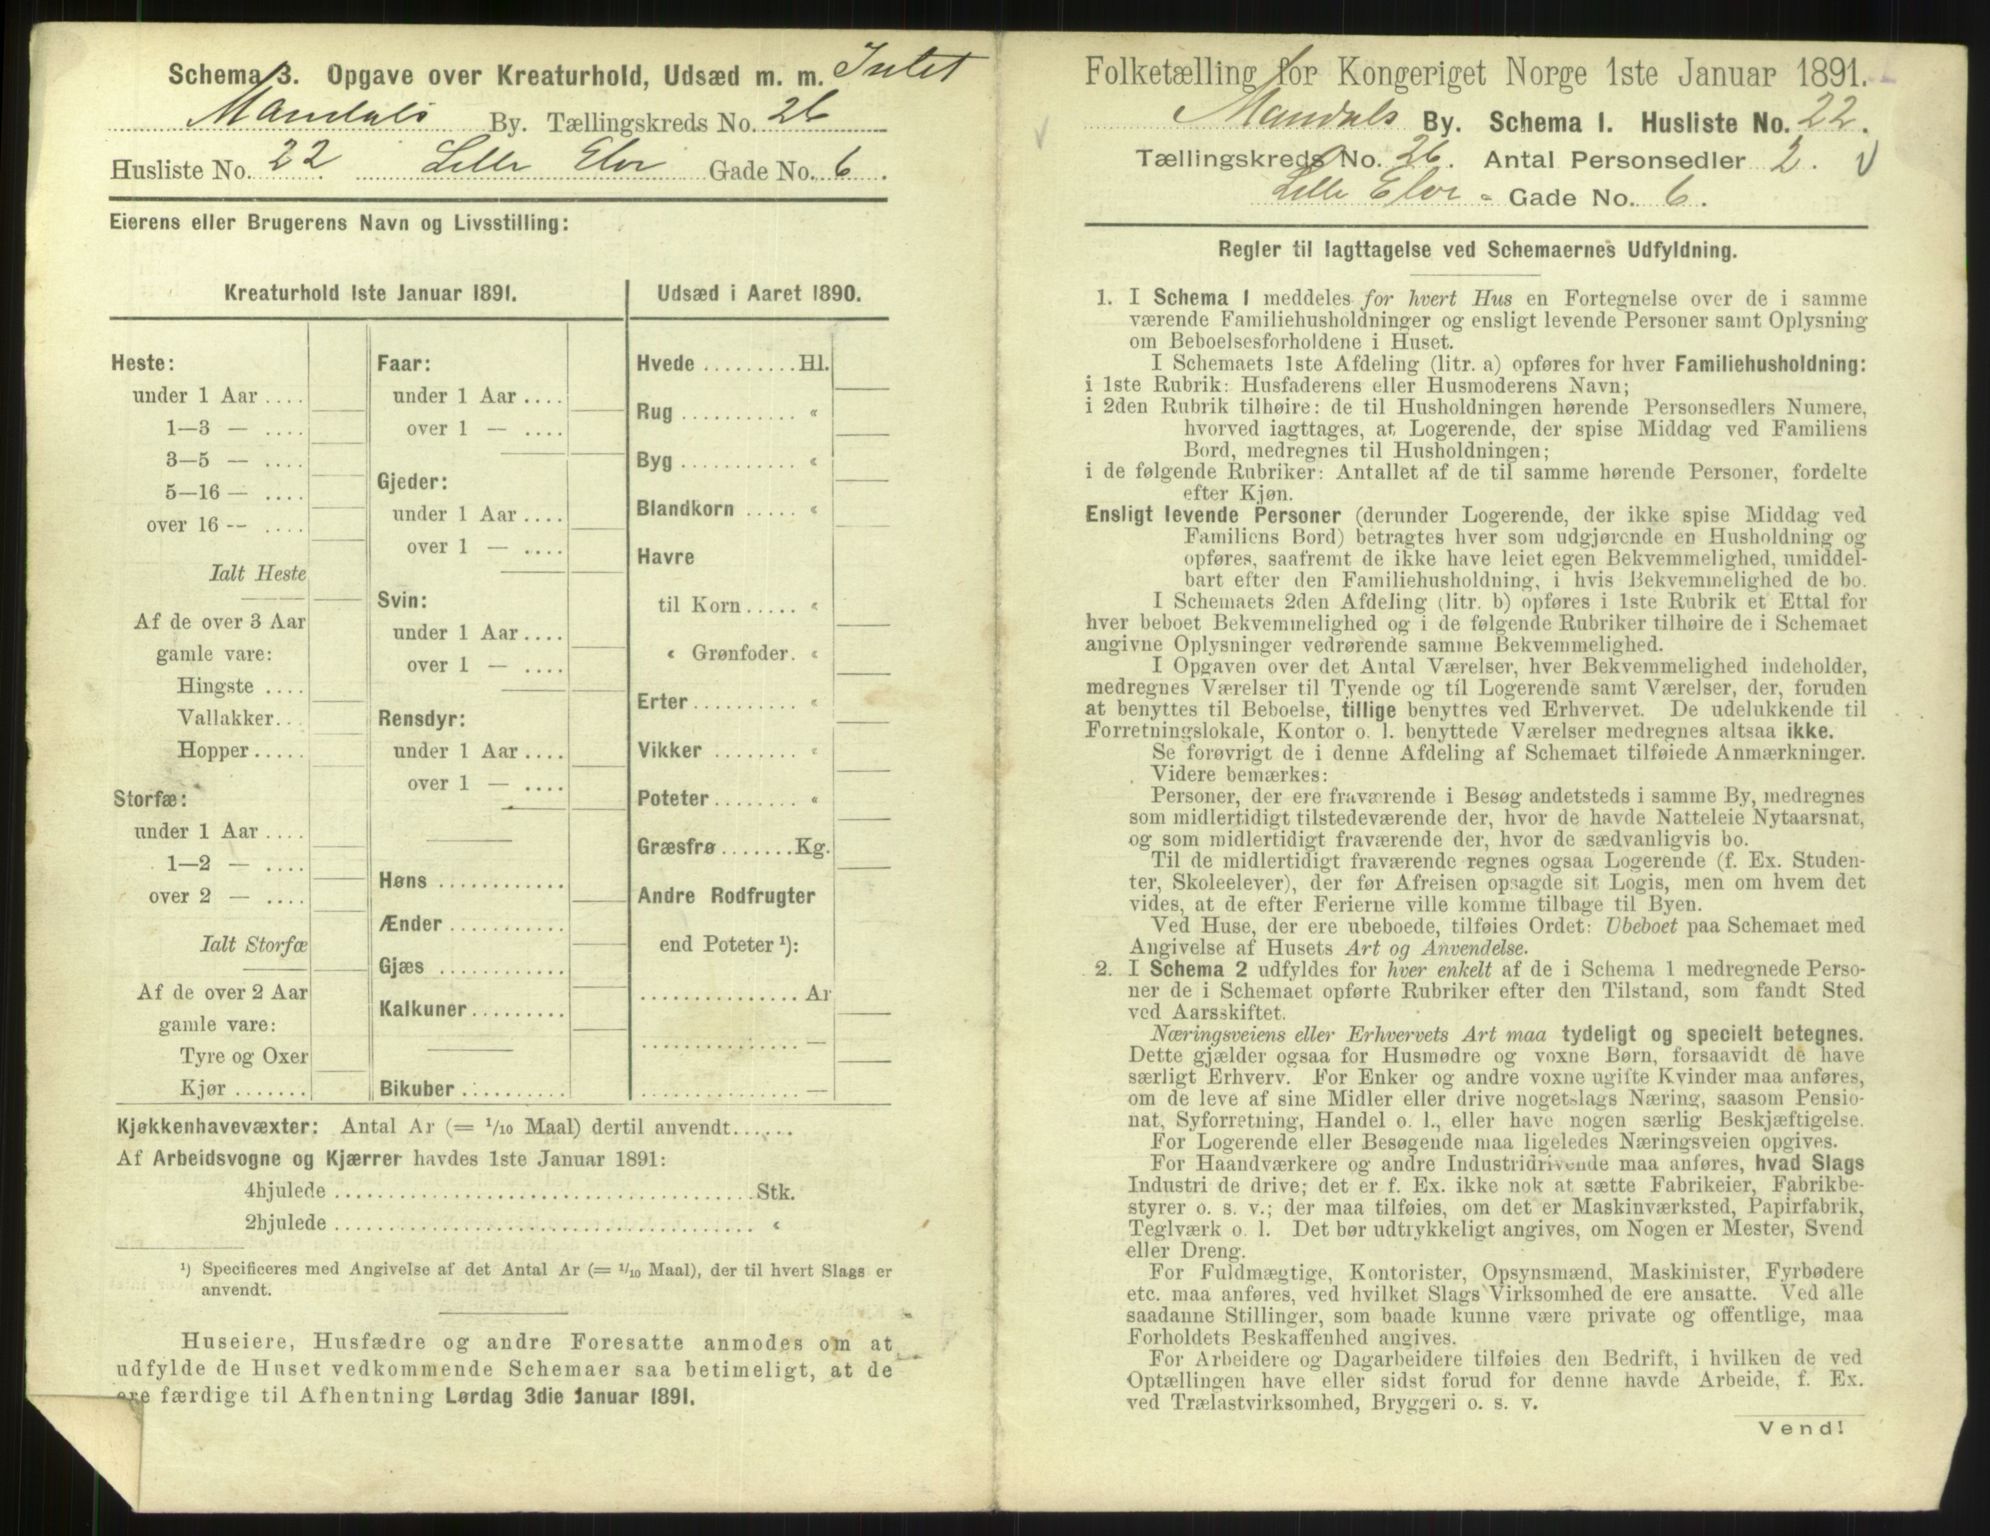 Schema 3. Opgave over Kreaturhold, Udsæd m. m. Intet
Mandals By. Tællingskreds No. 26
Husliste No. 22 Lille Elve Gade No. 6.
Eierens eller Brugerens Navn og Livsstilling:
Kreaturhold 1ste Januar 1891.
Heste:
under 1 Aar ....
1—3 — ....
3—5 — ....
5—16 — ....
over 16 -- ....
Ialt Heste
Af de over 3 Aar
gamle vare:
Hingste ....
Vallakker...
Hopper.....
Storfæ:
under 1 Aar ....
1—2 — ....
over 2 — ....
Ialt Storfæ
Af de over 2 Aar
gamle vare:
Tyre og Oxer
Kjør .......
Faar:
under 1 Aar ....
over 1 — ....
Gjeder:
under 1 Aar ....
over 1 — ....
Svin:
under 1 Aar ....
over 1 — ....
Rensdyr:
under 1 Aar ....
over 1 — ....
Høns ............
Ænder ...........
Gjæs ............
Kalkuner.........
Bikuber ..........
Udsæd i Aaret 1890.
Hvede .........Hl.
Rug .......... «
Byg .......... «
Blandkorn ..... «
Havre
til Korn ..... «
« Grønfoder. «
Erter.......... «
Vikker ........ «
Poteter ........ «
Græsfrø .......Kg.
Andre Rodfrugter
end Poteter ¹):
............... Ar
............... —
............... —
Kjøkkenhavevæxter: Antal Ar (= 1/10 Maal) dertil anvendt......
Af Arbeidsvogne og Kjærrer havdes 1ste Januar 1891:
4hjulede ........................................ Stk.
2hjulede ........................................ «
¹) Specificeres med Angivelse af det Antal Ar (= 1/10 Maal), der til hvert Slags er
anvendt.
Huseiere, Husfædre og andre Foresatte anmodes om at
udfylde de Huset vedkommende Schemaer saa betimeligt, at de
ere færdige til Afhentning Lørdag 3die Januar 1891.
Folketælling for Kongeriget Norge 1ste Januar 1891.
Mandals By. Schema I. Husliste No. 22.
Tællingskreds No. 26. Antal Personsedler 2.
Lille Elve - Gade No. 6.
Regler til Iagttagelse ved Schemaernes Udfyldning.
1. I Schema 1 meddeles for hvert Hus en Fortegnelse over de i samme
værende Familiehusholdninger og ensligt levende Personer samt Oplysning
om Beboelsesforholdene i Huset.
I Schemaets 1ste Afdeling (litr. a) opføres for hver Familiehusholdning:
i 1ste Rubrik: Husfaderens eller Husmoderens Navn;
i 2den Rubrik tilhøire: de til Husholdningen hørende Personsedlers Numere,
hvorved iagttages, at Logerende, der spise Middag ved Familiens
Bord, medregnes til Husholdningen;
i de følgende Rubriker: Antallet af de til samme hørende Personer, fordelte
efter Kjøn.
Ensligt levende Personer (derunder Logerende, der ikke spise Middag ved
Familiens Bord) betragtes hver som udgjørende en Husholdning og
opføres, saafremt de ikke have leiet egen Bekvemmelighed, umiddel-
bart efter den Familiehusholdning, i hvis Bekvemmelighed de bo.
I Schemaets 2den Afdeling (litr. b) opføres i 1ste Rubrik et Ettal for
hver beboet Bekvemmelighed og i de følgende Rubriker tilhøire de i Schemaet
angivne Oplysninger vedrørende samme Bekvemmelighed.
I Opgaven over det Antal Værelser, hver Bekvemmelighed indeholder,
medregnes Værelser til Tyende og til Logerende samt Værelser, der, foruden
at benyttes til Beboelse, tillige benyttes ved Erhvervet. De udelukkende til
Forretningslokale, Kontor o. l. benyttede Værelser medregnes altsaa ikke.
Se forøvrigt de i denne Afdeling af Schemaet tilføiede Anmærkninger.
Videre bemærkes:
Personer, der ere fraværende i Besøg andetsteds i samme By, medregnes
som midlertidigt tilstedeværende der, hvor de havde Natteleie Nytaarsnat,
og som midlertidigt fraværende der, hvor de sædvanligvis bo.
Til de midlertidigt fraværende regnes ogsaa Logerende (f. Ex. Studen-
ter, Skoleelever), der før Afreisen opsagde sit Logis, men om hvem det
vides, at de efter Ferierne ville komme tilbage til Byen.
Ved Huse, der ere ubeboede, tilføies Ordet: Ubeboet paa Schemaet med
Angivelse af Husets Art og Anvendelse.
2. I Schema 2 udfyldes for hver enkelt af de i Schema 1 medregnede Perso-
ner de i Schemaet opførte Rubriker efter den Tilstand, som fandt Sted
ved Aarsskiftet.
Næringsveiens eller Erhvervets Art maa tydeligt og specielt betegnes.
Dette gjælder ogsaa for Husmødre og voxne Børn, forsaavidt de have
særligt Erhverv. For Enker og andre voxne ugifte Kvinder maa anføres,
om de leve af sine Midler eller drive nogetslags Næring, saasom Pensio-
nat, Syforretning, Handel o. l., eller have nogen særlig Beskjæftigelse.
For Logerende eller Besøgende maa ligeledes Næringsveien opgives.
For Haandværkere og andre Industridrivende maa anføres, hvad Slags
Industri de drive; det er f. Ex. ikke nok at sætte Fabrikeier, Fabrikbe-
styrer o. s. v.; der maa tilføies, om det er Maskinværksted, Papirfabrik,
Teglværk o. l. Det bør udtrykkeligt angives, om Nogen er Mester, Svend
eller Dreng.
For Fuldmægtige, Kontorister, Opsynsmænd, Maskinister, Fyrbødere
etc. maa anføres, ved hvilket Slags Virksomhed de ere ansatte. Ved alle
saadanne Stillinger, som baade kunne være private og offentlige, maa
Forholdets Beskaffenhed angives.
For Arbeidere og Dagarbeidere tilføies den Bedrift, i hvilken de ved
Optællingen have eller sidst forud for denne havde Arbeide, f. Ex.
ved Trælastvirksomhed, Bryggeri o. s. v.
Vend!